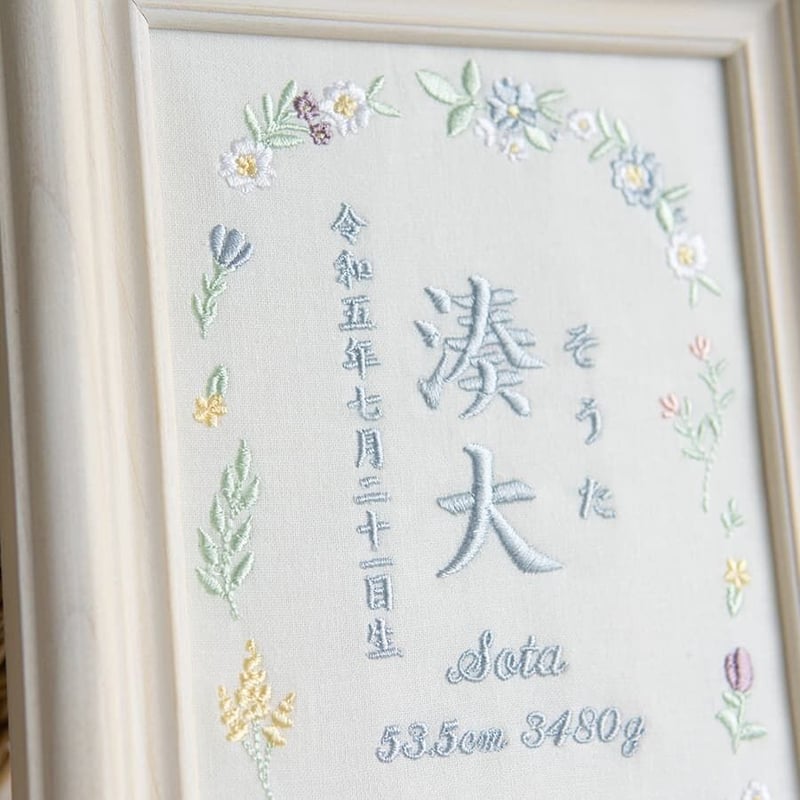 そうた
湊大
令和五年七月二十一日生
Sota
53.5cm 3480g